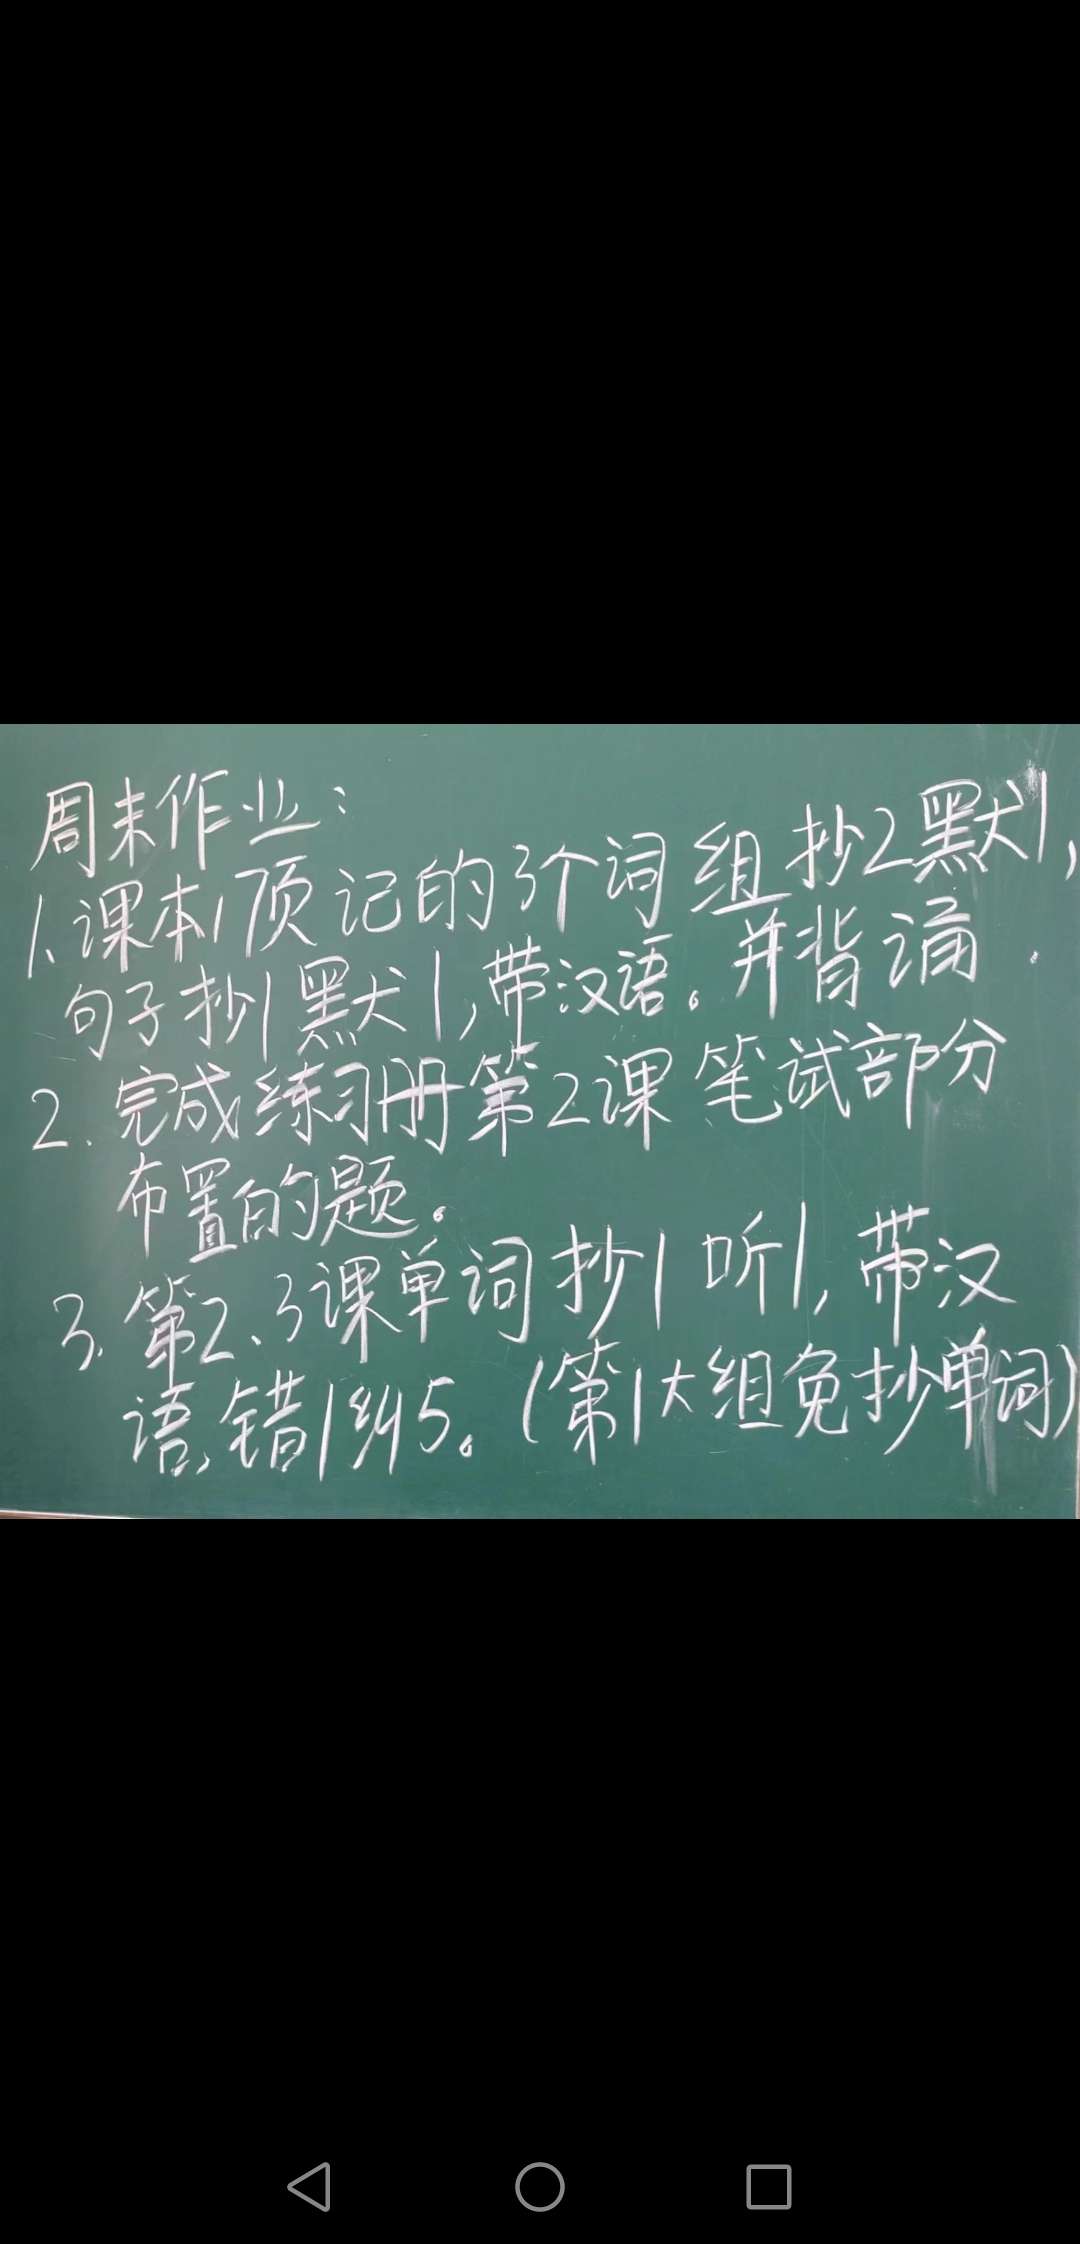 周末作业:
1.课本17页记的3个词组抄2默1,
句子抄1默1,带汉语。并背诵.
2.完成练习册第2课笔试部分
布置的题。
3.第2、3课单词抄1听1,带汉
语,错1纠5。(第1大组免抄单词)